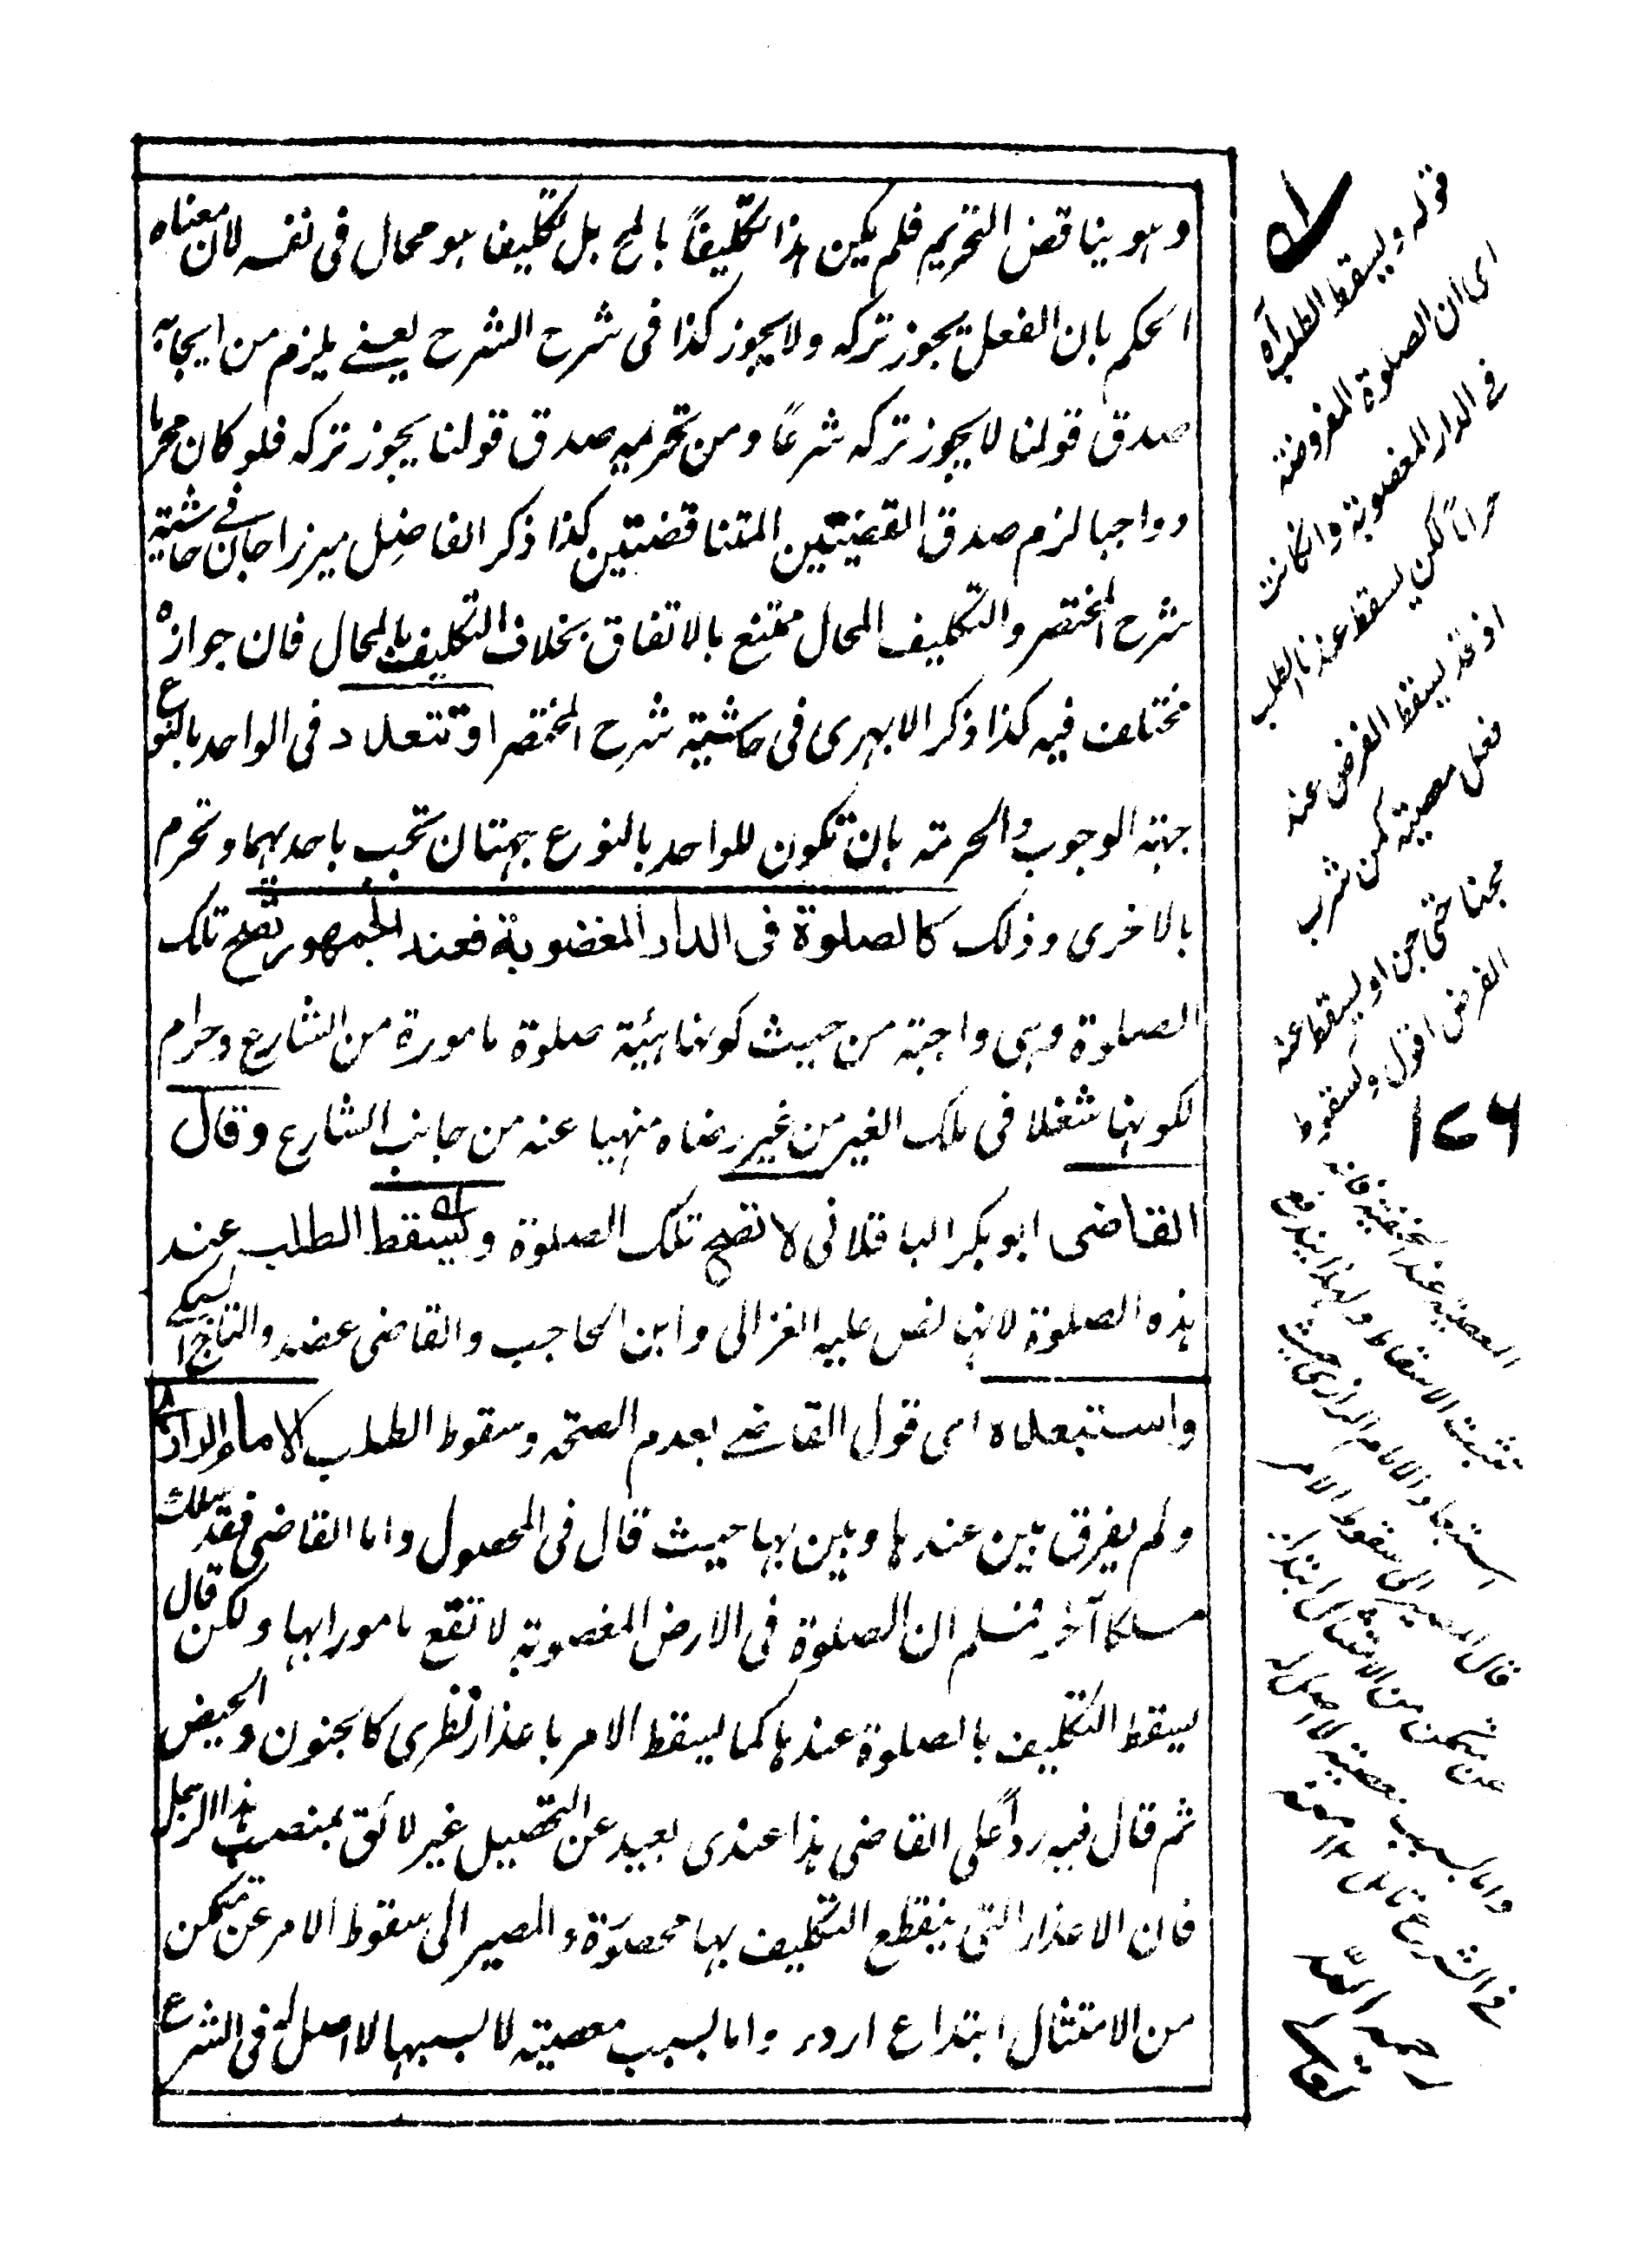 وهو يناقض التحريم فلم يكن هذا تكليفاً بالمح بل تكليفا هو محال فى نفسه لان معناه
الحكم بان الفعل يجوز تركه ولا يجوز كذا فى شرح الشرح يعنے يلزم من ايجابه
صدق قولنا لا يجوز تركه شرعاً ومن تحريمه صدق قولنا يجوز تركه فلو كان محرما
و واجبا لزم صدق القضيتين المتناقضتين كذا ذكر الفاضل ميرزا جان فے حاشية
شرح المختصر والتكليف المحال ممتنع بالاتفاق بخلاف التكليف بالمحال فان جوازه
مختلف فيه كذا ذكر الابهرى فى حاشية شرح المختصر او تتعدد فى الواحد بالنوع
جهة الوجوب والحرمة بان تكون للواحد بالنوع جهتان تجب باحدهما وتحرم
بالاخرى وذلك كالصلوة فى الدار المغضوبة فعند الجمهور تصح تلك
الصلوة وهى واجبة من حيث كونها هيئة صلوة مامورة من الشارع وحرام
لكونها شغلا فى ملك الغير من غير رضاه منهيا عنه من جانب الشارع وقال
القاضى ابو بكر الباقلانى لا تصح تلك الصلوة ويسقط الطلب عند
هذه الصلوة لا بها نص عليه الغزالى وابن الحاجب والقاضى عضد والتاج السبكے
واستبعده اى قول القاضے بعدم الصحة وسقوط الطلب الامام الرازى
ولم يفرق بين عندها وبين بها حيث قال فى المحصول واما القاضى فقد سلك
مسلكا آخر فسلم ان الصلوة فى الارض المغصوبة لا تقع مامورا بها ولكن قال
يسقط التكليف بالصلوة عندها كما يسقط الامر باعذار تطرى كالجنون والحيض
ثم قال فيه رداً على القاضى هذا عندى بعيد عن التحصيل غير لائق بمنصب هذا الرجل
فان الاعذار التى ينقطع التكليف بها محصورة والمصير الى سقوط الامر عن متمكن
من الامتثال ابتداع اردء واما بسبب معصية لا بسببها لا اصل له فى الشرع
قوله ويسقط الطلب آه
اى ان الصلوة المفروضة
فے الدار المغصوبة وان كانت
حراماً لكن يسقط عندنا الطلب
اذ قد يسقط الفرض عند
فعل معصية كمن شرب
مجننا حتى جن او يسقط عنه
الفرض اقول وسقوط
١٢٦
المعصية عند الحنفية فانه
يثبت الاسقاط ولهذا يندفع
استبعاد الامام الرازى حيث
قال المصير الى سقوط الامر
عن متمكن من الامتثال ابتداء
واما بسبب معصية لا اصل له
فے الشرع